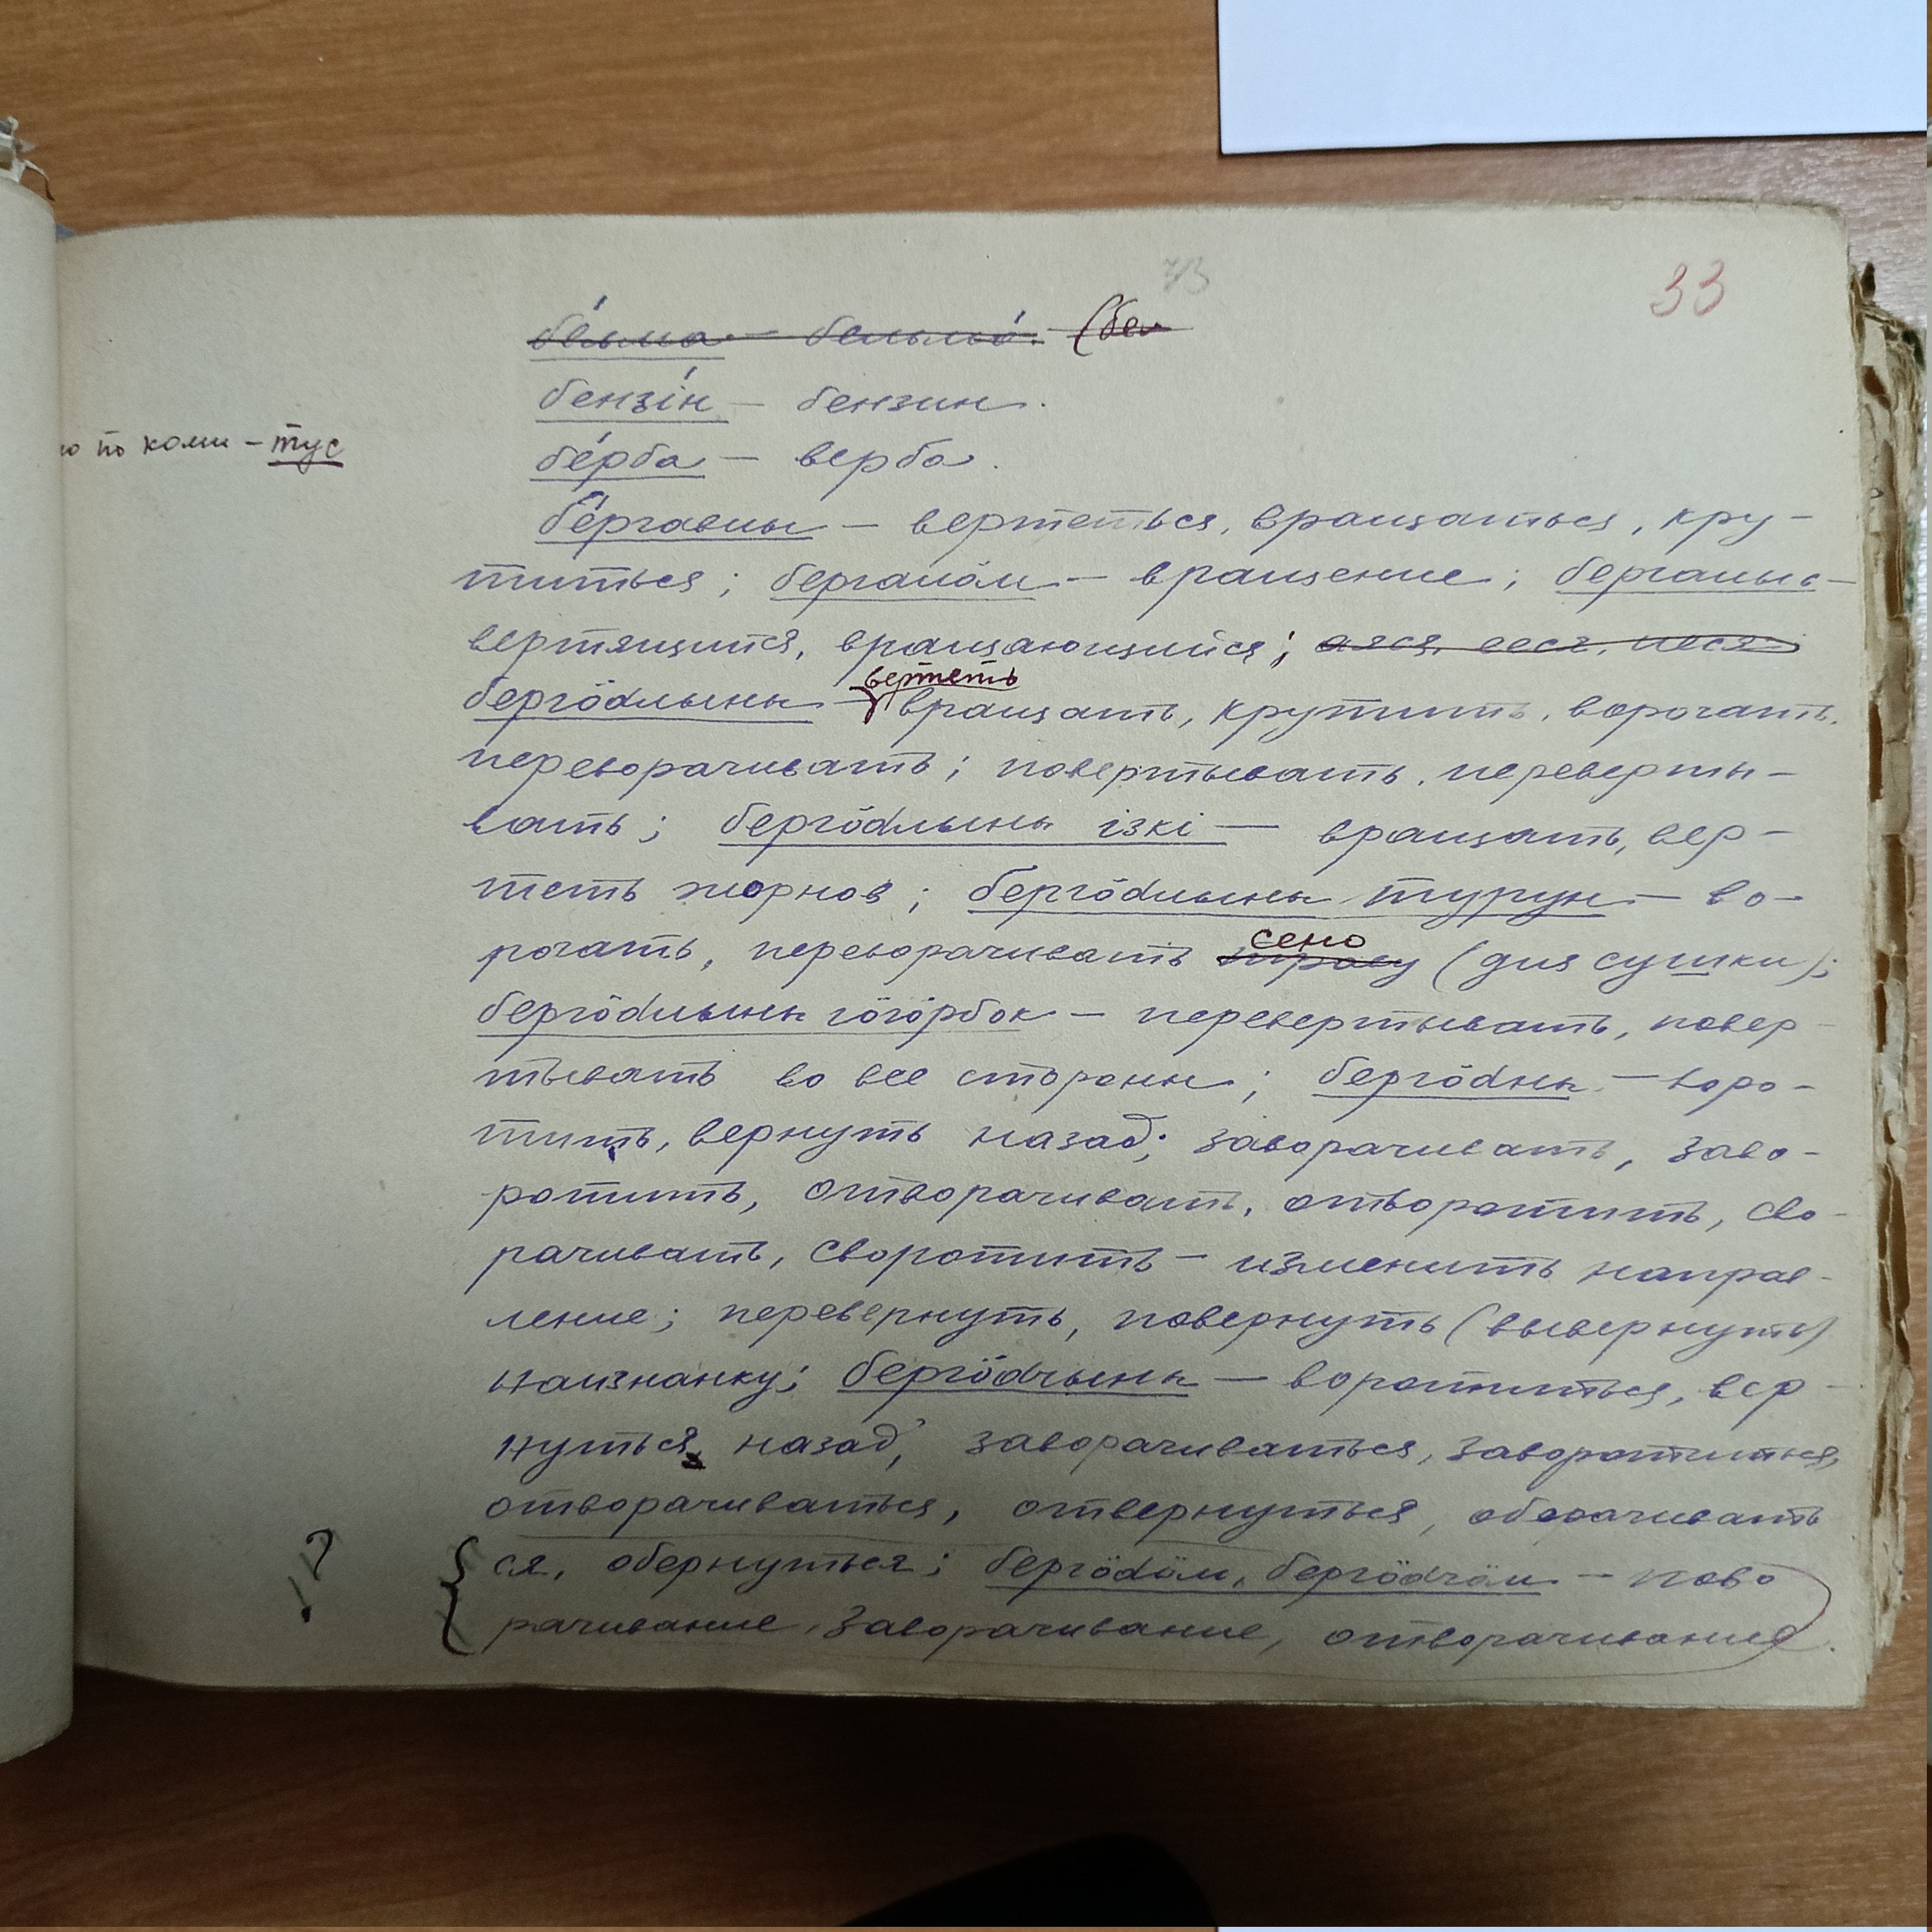 73
33
бе́льма – бельмо́. (бел
бензі́н – бензин.
по коми – тус
бе́рба – верба.
бе́ргавны – вертеться, вращаться, кру-
титься; бергалӧм – вращение; бергалысь –
вертящийся, вращающийся; аяся, ееся, иеся
вертеть
бергӧдлыны – вращать, крутить, ворочать,
переворачивать; повертывать, переверты-
вать; бергӧдлыны ізкі – вращать, вер-
теть жорнов; бергӧдлыны турун – во-
сено
рочать, переворачивать траву (для сушки);
бергӧдлыны гӧгӧрбок – перевертывать, повер-
тывать во все стороны; бергӧдны – воро-
тить, вернуть назад; заворачивать, заво-
ротить, отворачивать, отворотить, сво-
рачивать, своротить – изменить направ-
ление; перевернуть, повернуть (вывернуть)
наизнанку; бергӧдчыны – воротиться, вер-
нуться назад, заворачиваться, заворотиться,
отворачиваться, отвернуться, оборачивать
ся, обернуться; бергӧдӧм, бергӧдчӧм – пово
рачивание, заворачивание, отворачивание.
?